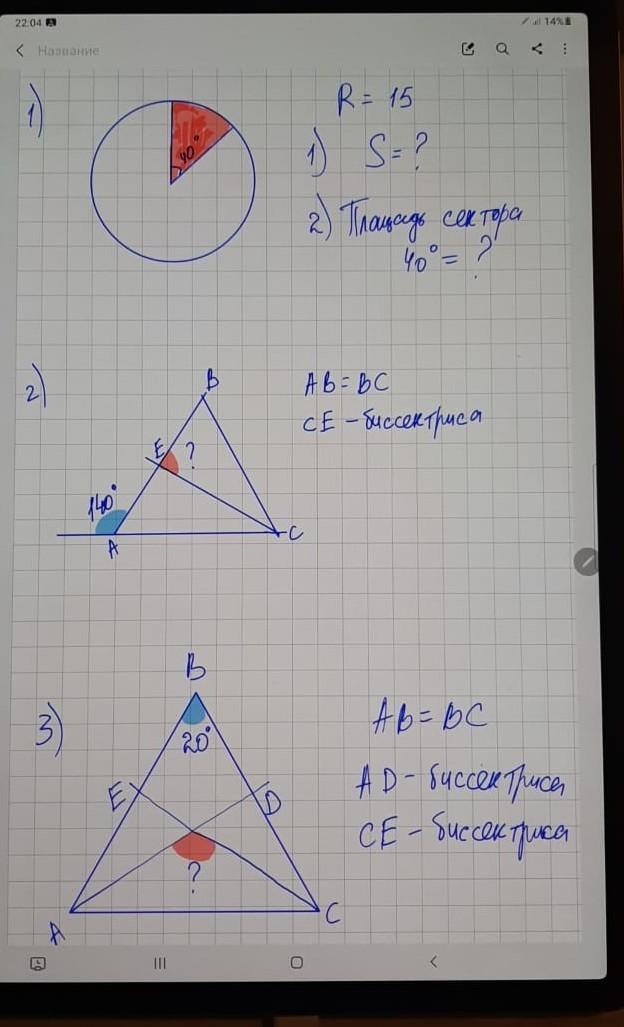 22:04 14%
Название
1)
40°
R = 15
1) S = ?
2) Площадь сектора
40° = ?
2)
B
E ?
140°
A
C
AB = BC
CE – биссектриса
3)
B
20°
E
D
?
A
C
AB = BC
AD – биссектриса
CE – биссектриса